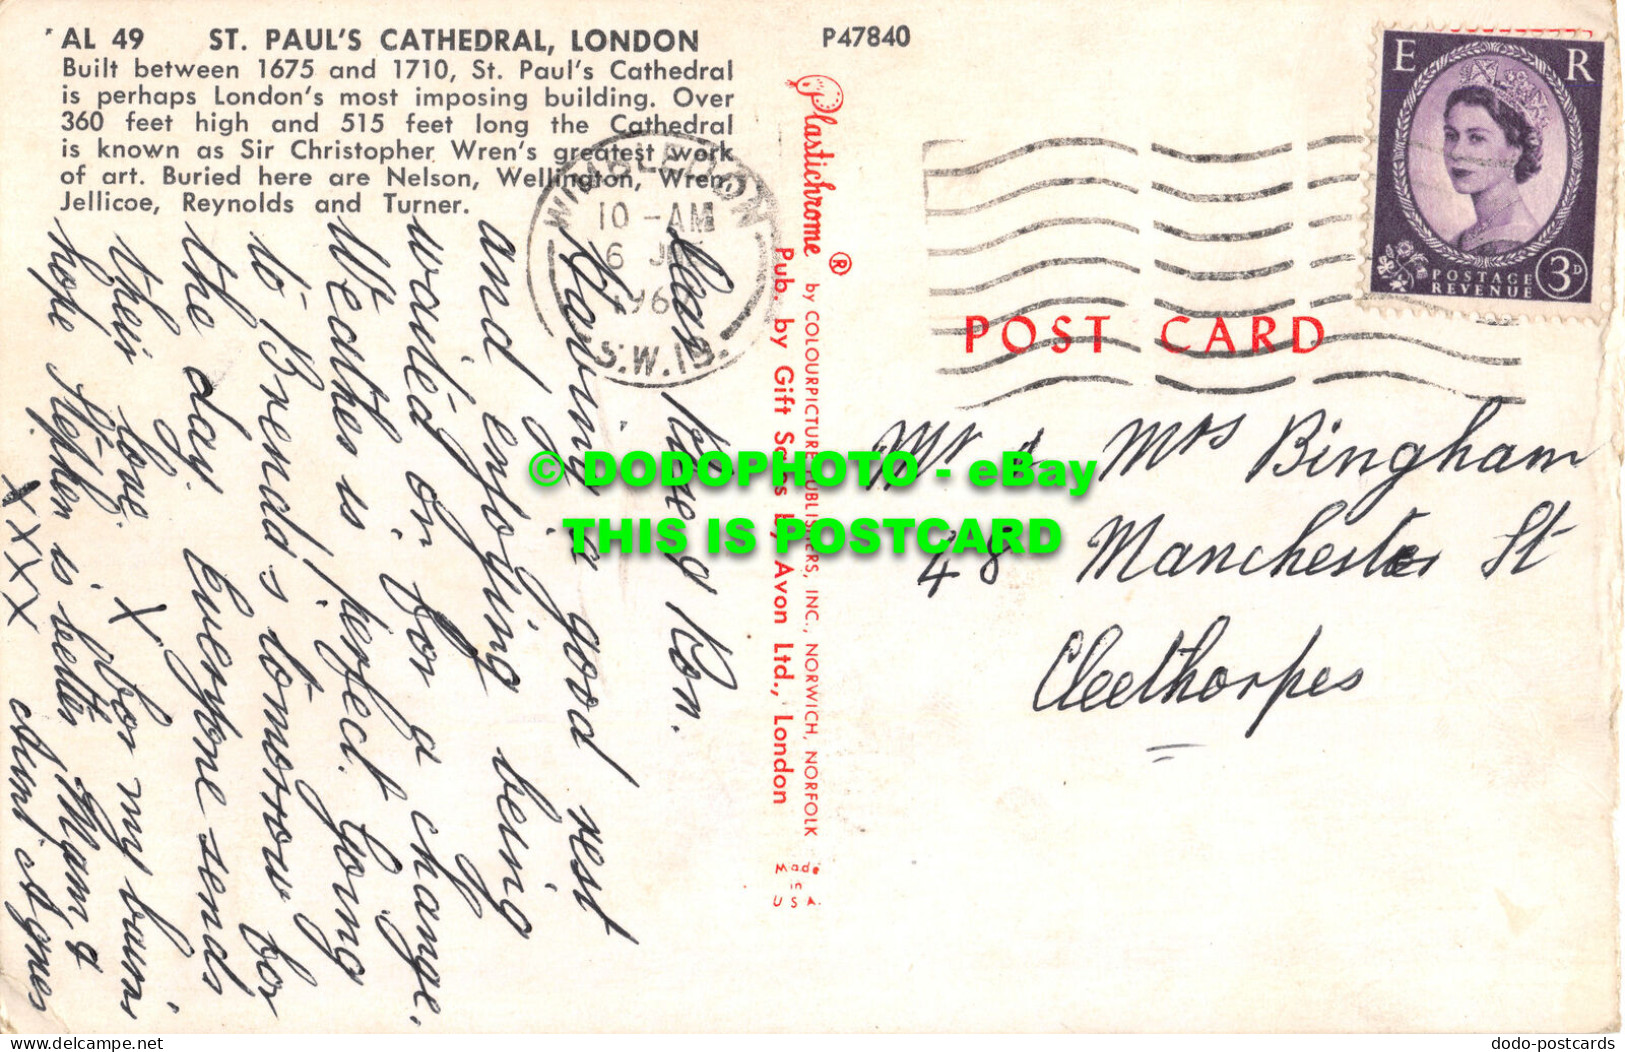 AL 49 ST. PAUL'S CATHEDRAL, LONDON
Built between 1675 and 1710, St. Paul's Cathedral
is perhaps London's most imposing building. Over
360 feet high and 515 feet long the Cathedral
is known as Sir Christopher Wren's greatest work
of art. Buried here are Nelson, Wellington, Wren,
Jellicoe, Reynolds and Turner.
P47840
Plastichrome ® by COLOURPICTURE PUBLISHERS, INC., NORWICH, NORFOLK
Pub. by Gift Sales by Avon Ltd., London
Made
in
USA.
WIMBLEDON
10 - AM
6
196
S.W.19.
E R
POSTAGE
REVENUE
3D
POST CARD
Mr & Mrs Bingham
48 Manchester St
Cleethorpes
Dear & Ron.
Having a good rest
and enjoying being
waited on for a change.
Weather is perfect. Going
to Brenda's tomorrow for
the day. Everyone sends
their love. X for my
hope Stephen is better Mum &
XXXX Aunt Agnes
© DODOPHOTO - eBay
THIS IS POSTCARD
delcampe.net
dodo-postcards